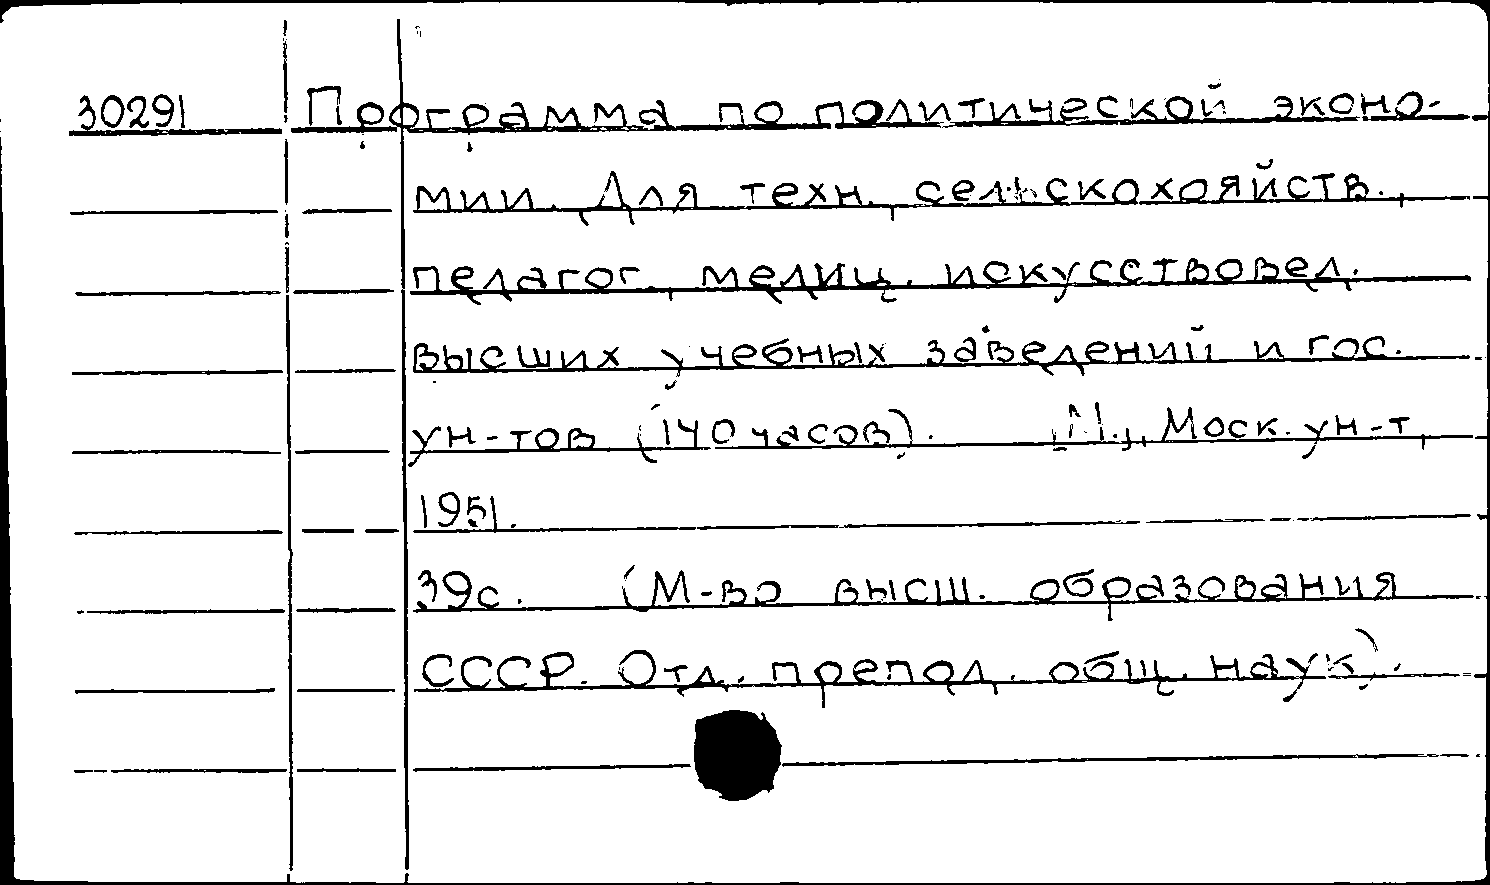 30291 Программа по политической эконо-
мии. Для техн., сельскохояйств.,
педагог., медиц. искусствовед.
высших учебных заведений и гос.
ун-тов (140 часов). [М.], Моск. ун-т,
1951.
39с. (М-во высш. образования
СССР. Отд. препод. общ. наук).